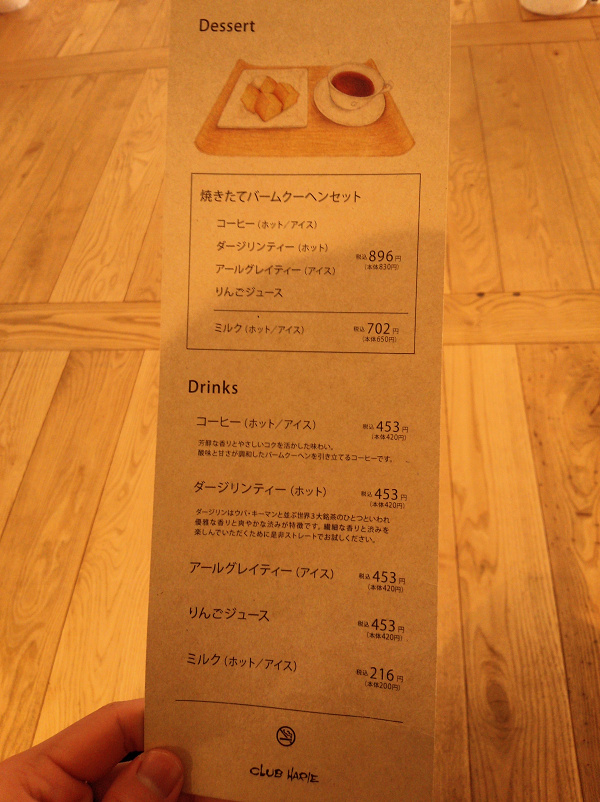 Dessert
焼きたてバームクーヘンセット
コーヒー（ホット／アイス）
ダージリンティー（ホット）
アールグレイティー（アイス）
りんごジュース
税込896円
（本体830円）
ミルク（ホット／アイス） 税込702円
（本体650円）
Drinks
コーヒー（ホット／アイス） 税込453円
（本体420円）
芳醇な香りとやさしいコクを活かした味わい。
酸味と甘さが調和したバームクーヘンを引き立てるコーヒーです。
ダージリンティー（ホット） 税込453円
（本体420円）
ダージリンはウバ・キーマンと並ぶ世界3大銘茶のひとつといわれ
優雅な香りと爽やかな渋みが特徴です。繊細な香りと渋みを
楽しんでいただくために是非ストレートでお試しください。
アールグレイティー（アイス） 税込453円
（本体420円）
りんごジュース 税込453円
（本体420円）
ミルク（ホット／アイス） 税込216円
（本体200円）
CLUB HARIE